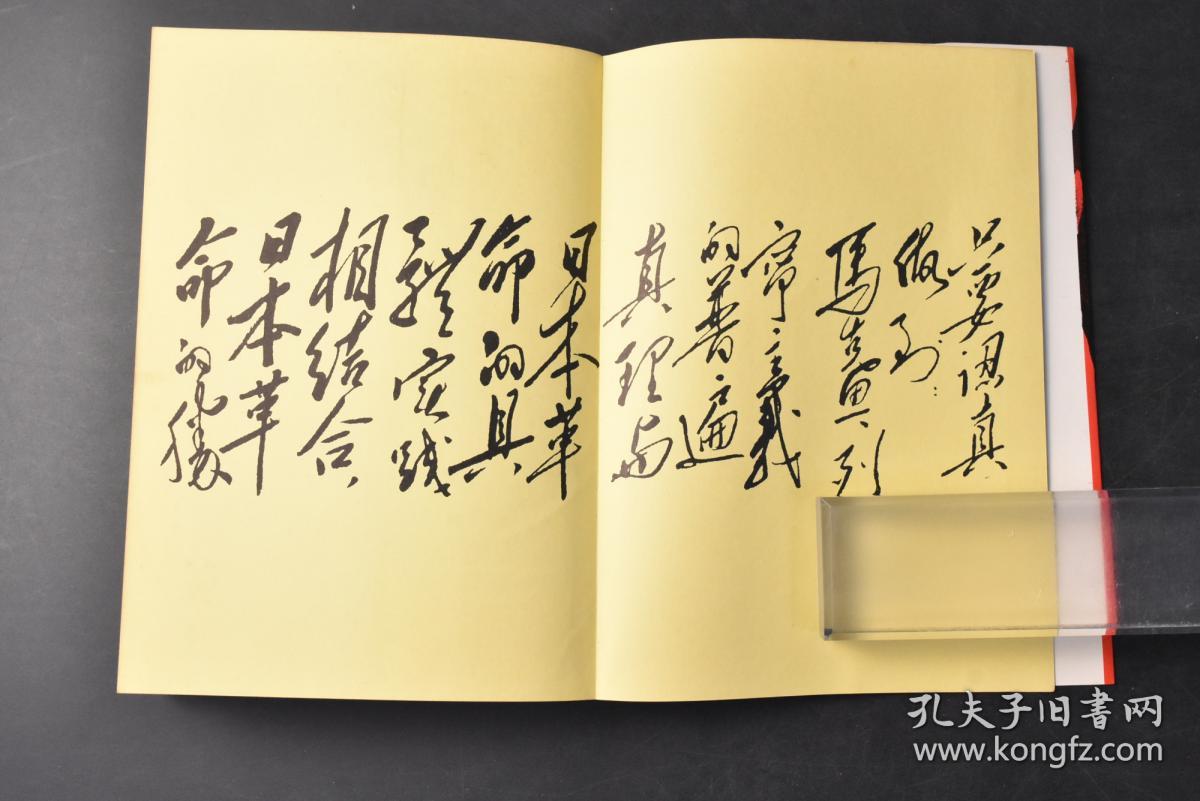 只要認真
做到:
馬克思列
寧主義
的普遍
真理与
日本革
命的具
體实践
相结合
日本革
命的勝
孔夫子旧書网
www.kongfz.com